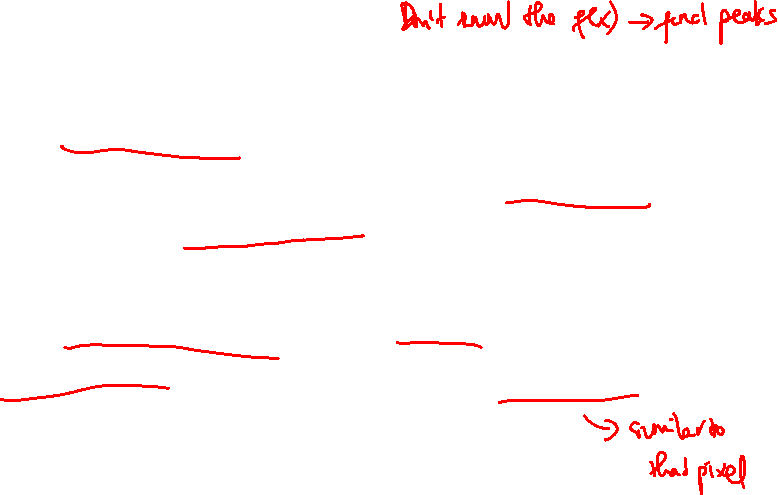 Don't need the f(x) → find peaks
similar to
that pixel